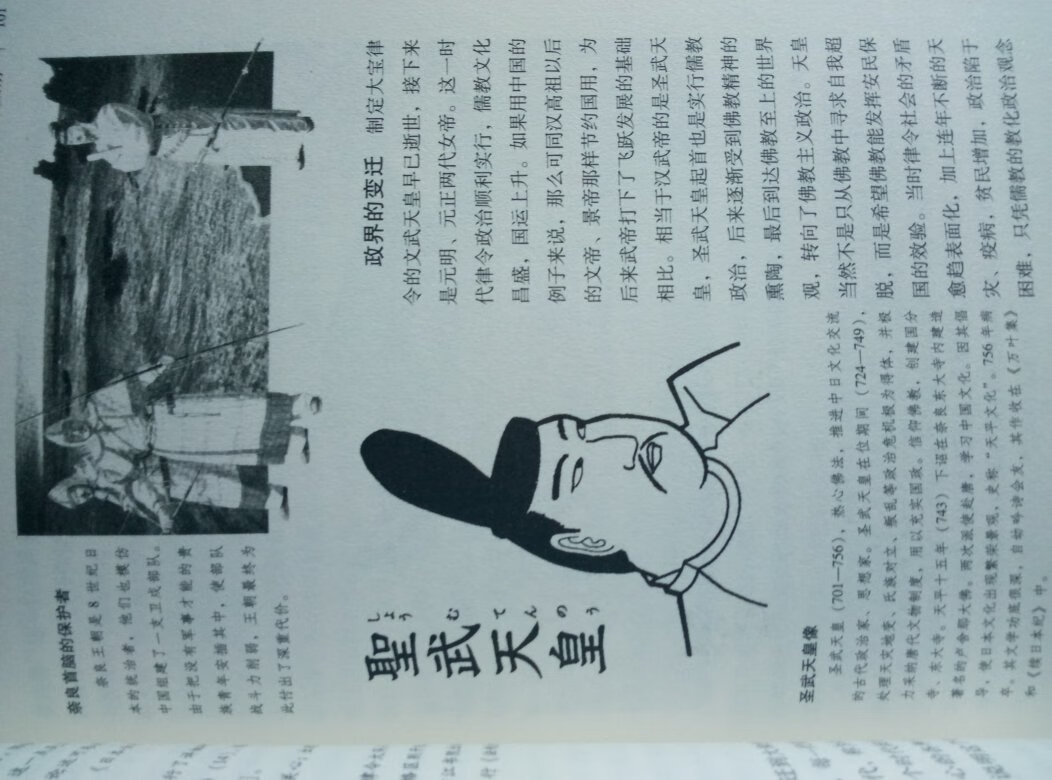 奈良首脑的保护者
奈良王朝是 8 世纪日
本的统治者，他们也模仿
中国组建了一支卫戍部队。
由于把没有军事才能的贵
族青年安插其中，使部队
战斗力削弱，王朝最终为
此付出了深重代价。
聖武天皇
しょうむてんのう
圣武天皇像
圣武天皇（701—756），热心佛法，推进中日文化交流
的古代政治家、思想家。圣武天皇在位期间（724—749），
处理天灾地变、氏族对立、叛乱等政治危机极为得体，并极
力采纳唐代文物制度，用以充实国政。信仰佛教，创建国分
寺、东大寺。天平十五年（743）下诏在奈良东大寺内建造
著名的卢舍那大佛。两次派使赴唐，学习中国文化。因其倡
导，使日本文化出现繁荣景观，史称“天平文化”。756 年病
卒。其文学功底很深，自幼吟诗会友，其作收在《万叶集》
和《续日本纪》中。
政界的变迁 制定大宝律
令的文武天皇早已逝世，接下来
是元明、元正两代女帝。这一时
代律令政治顺利实行，儒教文化
昌盛，国运上升。如果用中国的
例子来说，那么可同汉高祖以后
的文帝、景帝那样节约国用，为
后来武帝打下了飞跃发展的基础
相比。相当于汉武帝的是圣武天
皇，圣武天皇起首也是实行儒教
政治，后来逐渐受到佛教精神的
熏陶，最后到达佛教至上的世界
观，转向了佛教主义政治。天皇
当然不是只从佛教中寻求自我超
脱，而是希望佛教能发挥安民保
国的效验。当时律令社会的矛盾
愈趋表面化，加上连年不断的天
灾、疫病，贫民增加，政治陷于
困难，只凭儒教的教化政治观念